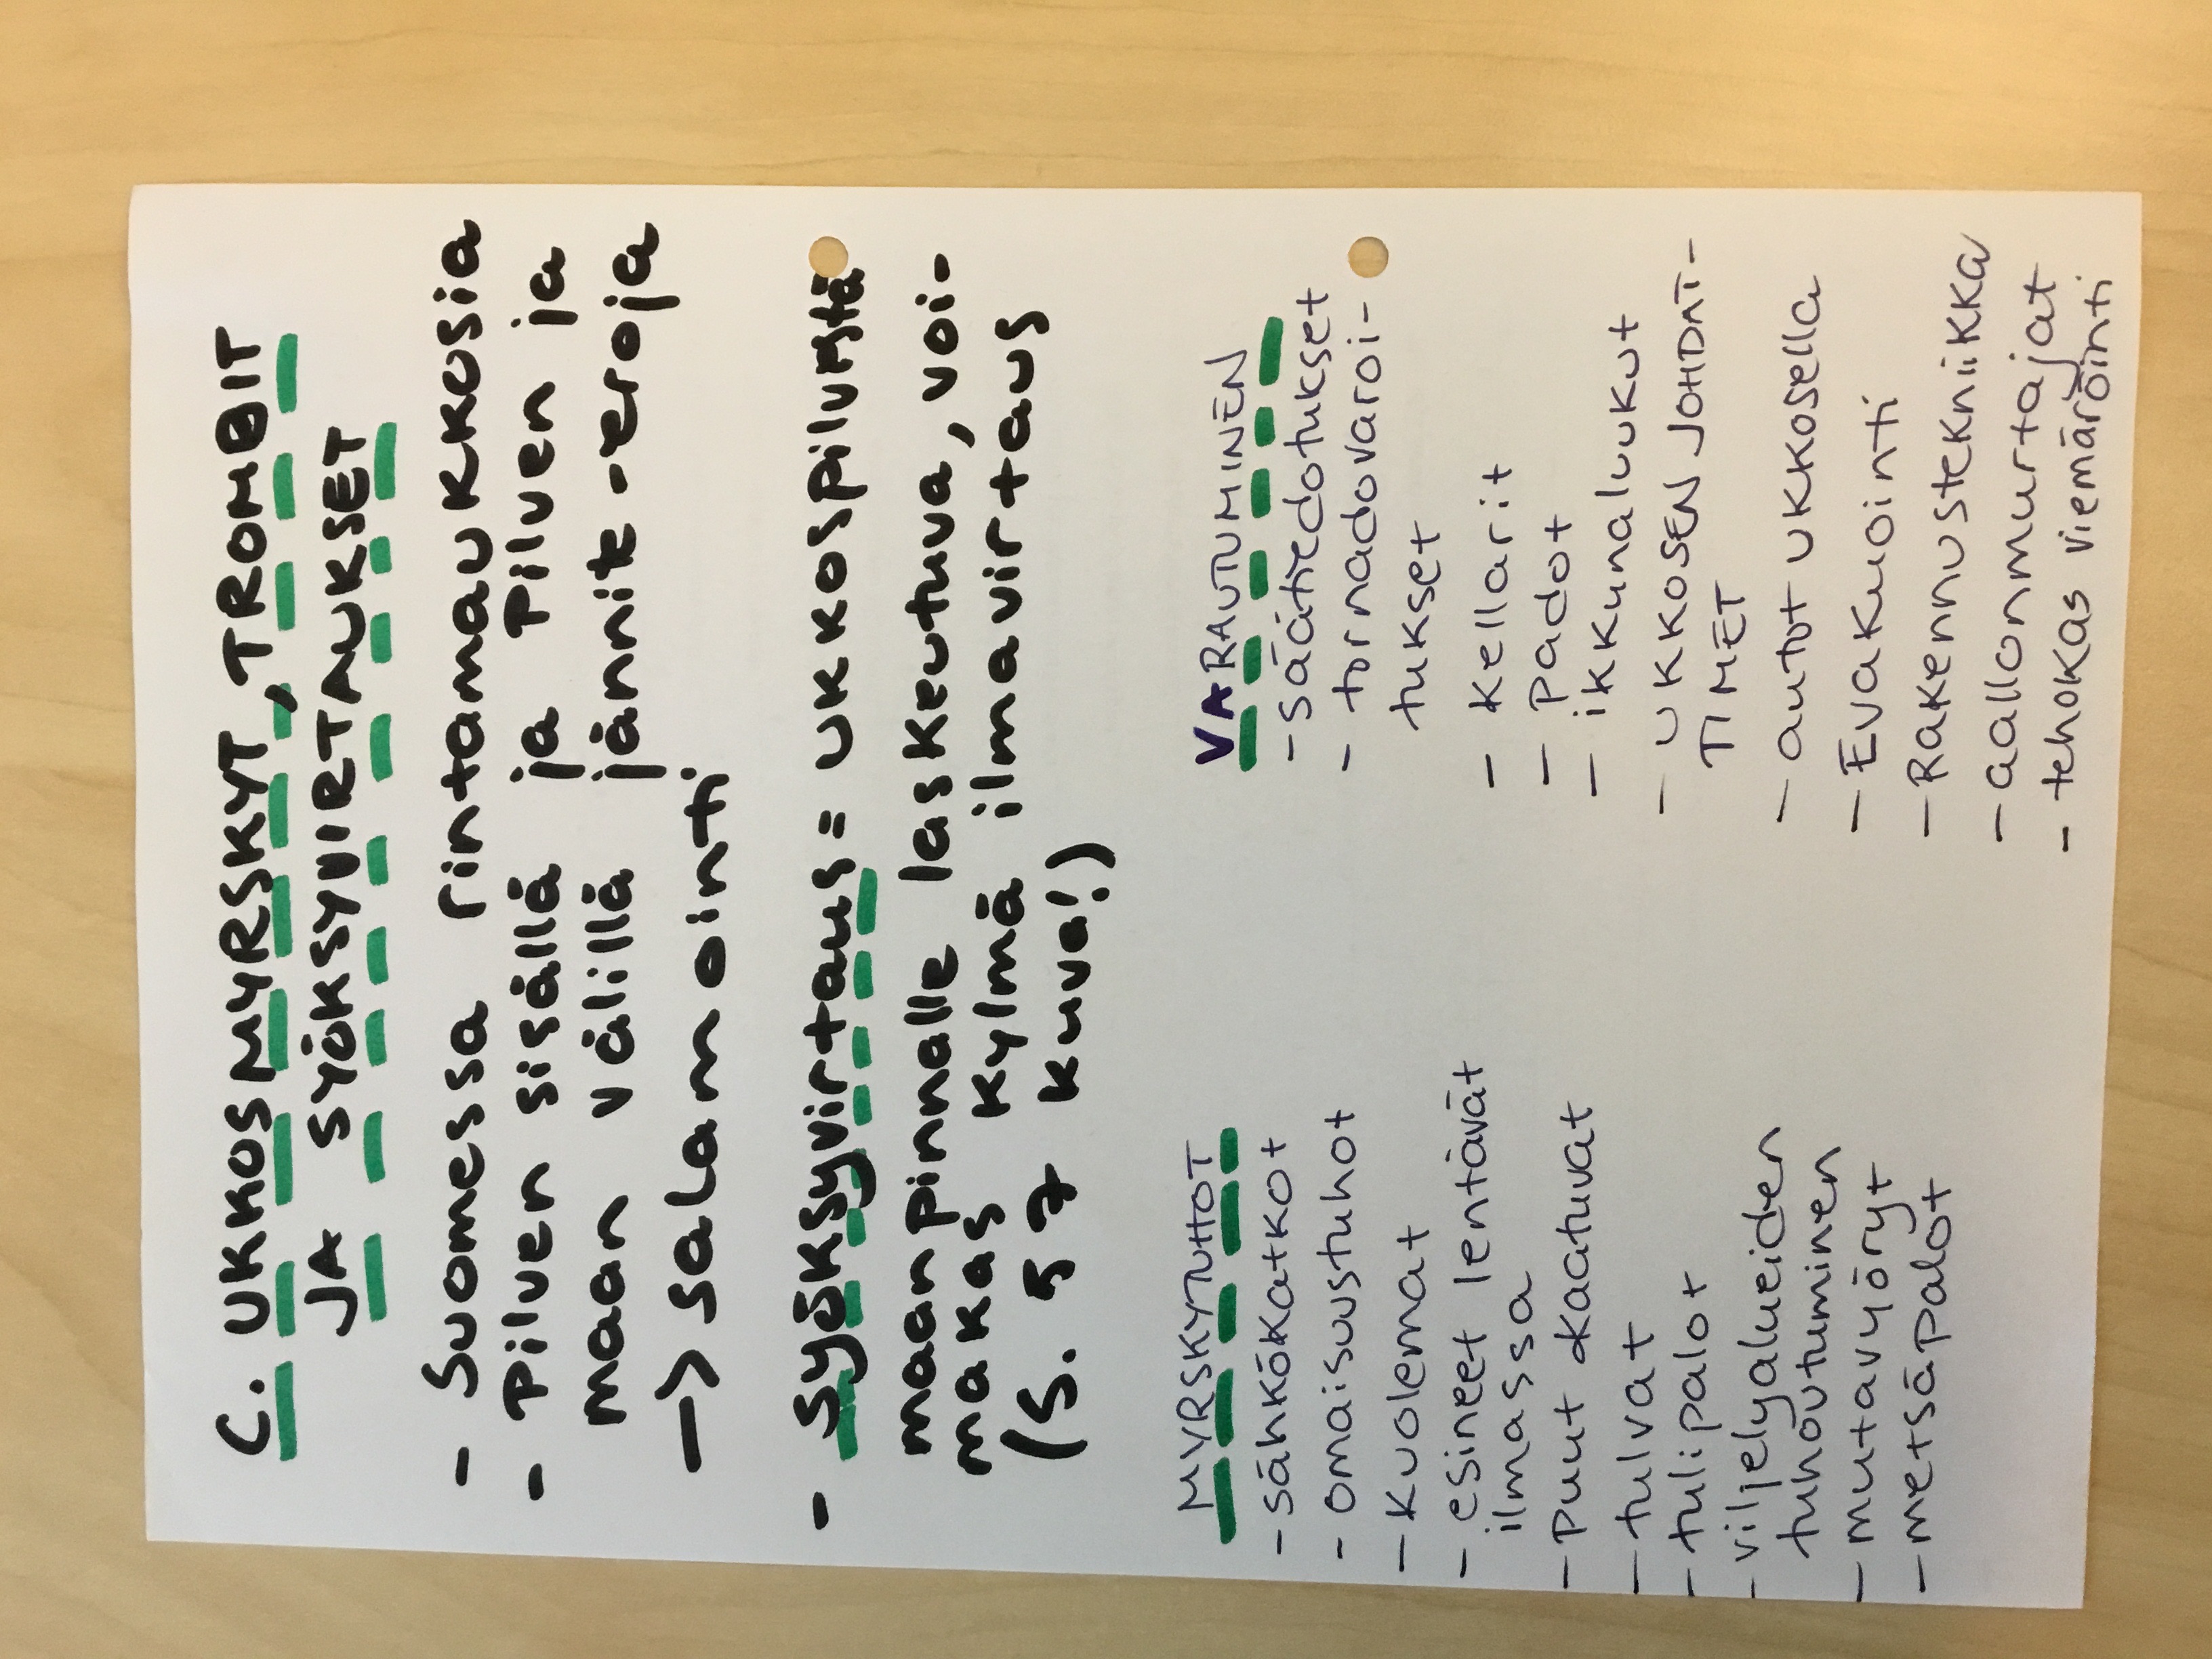 C. UKKOSMYRSKYT, TROMBIT
JA SYÖKSYVIRTAUKSET
- Suomessa rintamaukkosia
- Pilven sisällä ja Pilven ja
maan välillä jännite-eroja
-> salamointi
- Syöksyvirtaus = ukkospilvestä
maanpinnalle laskeutuva, voi-
makas kylmä ilmavirtaus
(s. 57 kuva!)
MYRSKYTUHOT
- sähkökatkot
- omaisuustuhot
- kuolemat
- esineet lentävät
ilmassa
- puut kaatuvat
- tulvat
- tulipalot
- viljelyalueiden
tuhoutuminen
- mutavyöryt
- metsäpalot
VARAUTUMINEN
- säätiedotukset
- tornadovaroi-
tukset
- kellarit
- Padot
- ikkunaluukut
- UKKOSEN JOHDAT-
TIMET
- autot ukkosella
- Evakuointi
- Rakennustekniikka
- aallonmurtajat
- tehokas viemäröinti